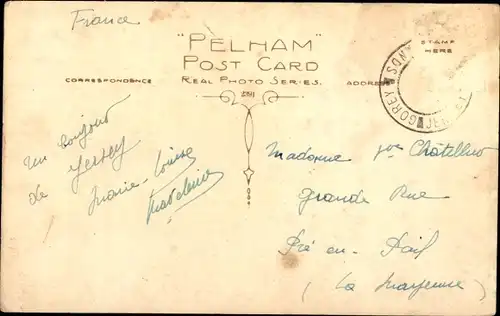 France
"PELHAM"
POST CARD
CORRESPONDENCE
REAL PHOTO SERIES.
ADDRESS
STAMP
HERE
GOREY
JERSEY
un bonjour
de Jersey
Marie-Louise
Madeleine
Madame Vve Châtellier
Grande Rue
Pré-en-Pail
(La Mayenne)